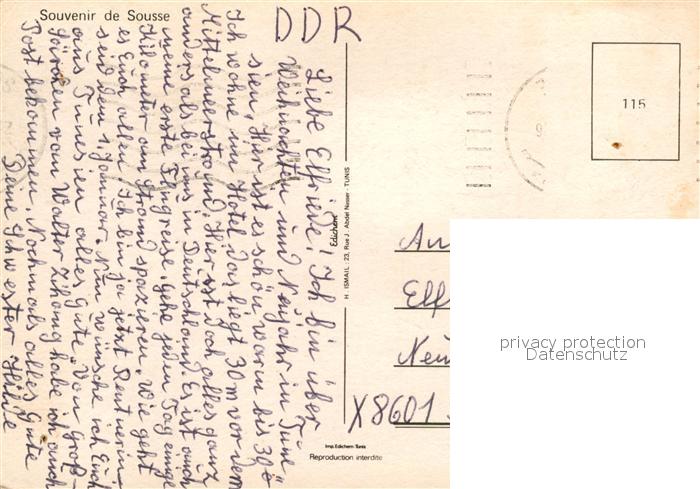 Souvenir de Sousse
DDR
Liebe Elfriede! Ich bin über
Weihnachten und Neujahr in Tune-
sien, Hier ist es schön warm bis
Ich wohne im Hotel das liegt 30 m vor dem
Mittelmeerstrand. Hier ist doch alles ganz
anders als bei uns in Deutschland Es ist auch
meine erste Flugreise. Gehe jeden Tag einige
Kilometer am Strand spazieren. Wie geht
es Euch allen. Ich bin ja jetzt Rentnerin
seid dem 1. Jannuar. Nun wünsche ich Euch
aus Tunesien alles Gute. Von Groß-
Särchen vom Walter habe ich auch
Post bekommen. Nochmals alles Gute
Deine Schwester Hilde
Edichem
H. ISMAIL. 23, Rue J. Abdel Nasser - TUNIS
115
An
Elf
Neu
X8601
privacy protection
Datenschutz
Imp. Edichem Tunis
Reproduction interdite